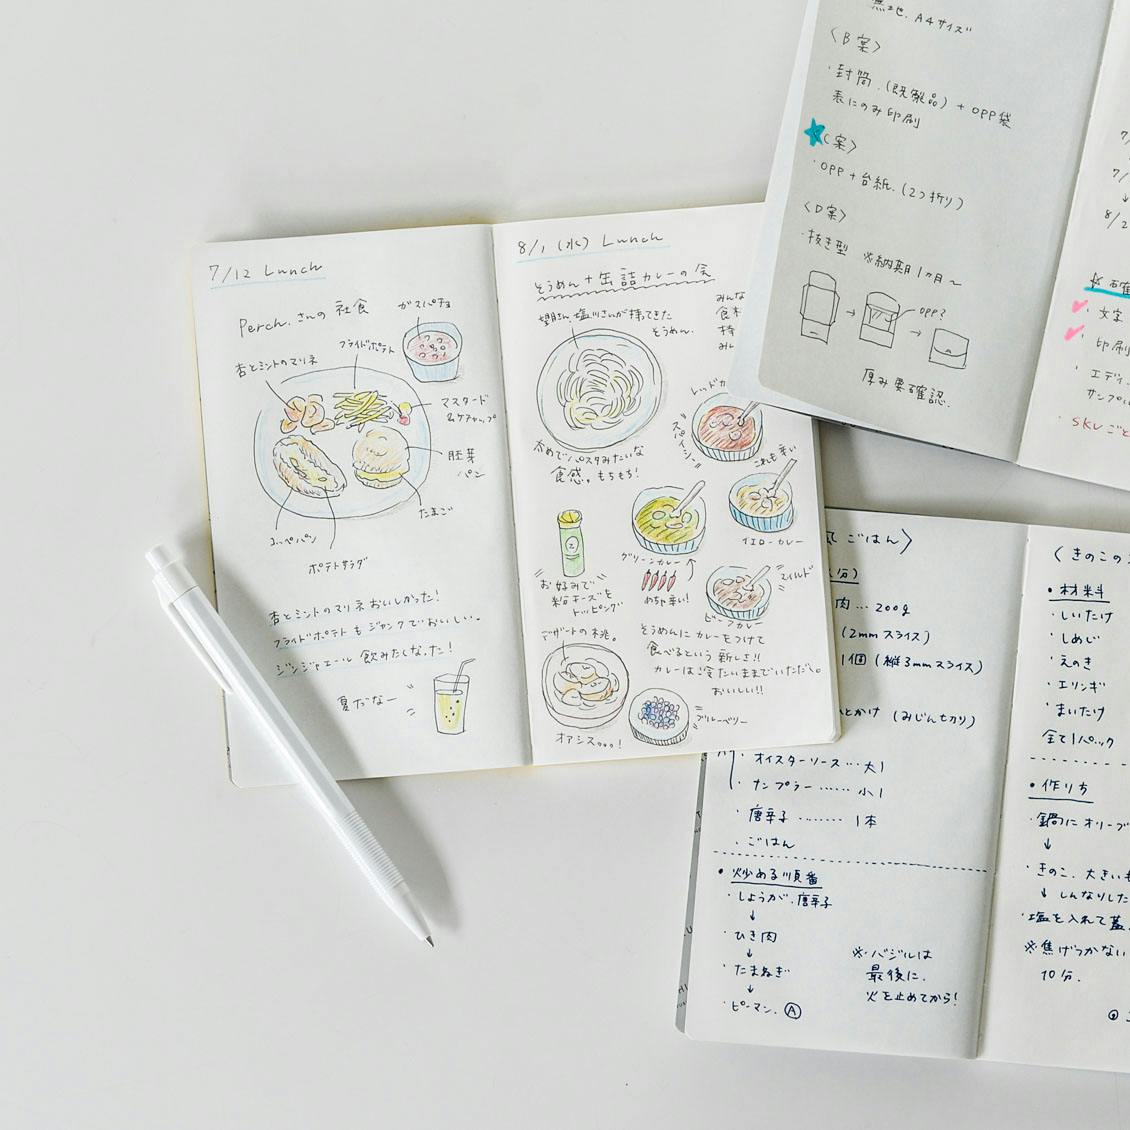 7/12 Lunch
Perch.さんの社食
ガスパチョ
フライドポテト
杏とミントのマリネ
マスタード
&ケチャップ
胚芽
パン
たまご
コッペパン
ポテトサラダ
杏とミントのマリネおいしかった!
フライドポテトもジャンクでおいしい。
ジンジャエール飲みたくなった!
夏だなー
8/1 (水) Lunch
そうめん+缶詰カレーの会
塩川さんが持ってきた
そうめん。
みんな
食
持
み
太めでパスタみたいな
食感。もちもち!
レッドカ
スパイシー
これも辛い
イエローカレー
グリーンカレー
めちゃ辛い!
マイルド
ビーフカレー
お好みで
粉チーズを
トッピング
デザートの桃。
そうめんにカレーをつけて
食べるという新しさ!!
カレーは冷たいままでいただく。
おいしい!!
ブルーベリー
オアシス。。。!
無地、A4サイズ
〈B案〉
・封筒.(既製品)+OPP袋
表にのみ印刷
〈C案〉
・OPP+台紙.(2つ折り)
〈D案〉
・抜き型 ※納期1ヶ月〜
OPP?
厚み要確認.
7/
7/
↓
8/2
☆確
・文字
・印刷
・エディ
サンプル
・SKUごと
ごはん〉
分)
肉…200g
(2mmスライス)
1個(縦3mmスライス)
ひとかけ(みじん切り)
・オイスターソース…大1
・ナンプラー……小1
・唐辛子………1本
・ごはん
・炒める順番
・しょうが、唐辛子
↓
・ひき肉
↓
・たまねぎ
↓
・ピーマン.Ⓐ
※・バジルは
最後に.
火を止めてから!
〈きのこの
・材料
・しいたけ
・しめじ
・えのき
・エリンギ
・まいたけ
全て1パック
・作り方
・鍋にオリーブ
↓
・きのこ、大きいも
↓しんなりした
・塩を入れて蓋.
※焦げつかない
10分.